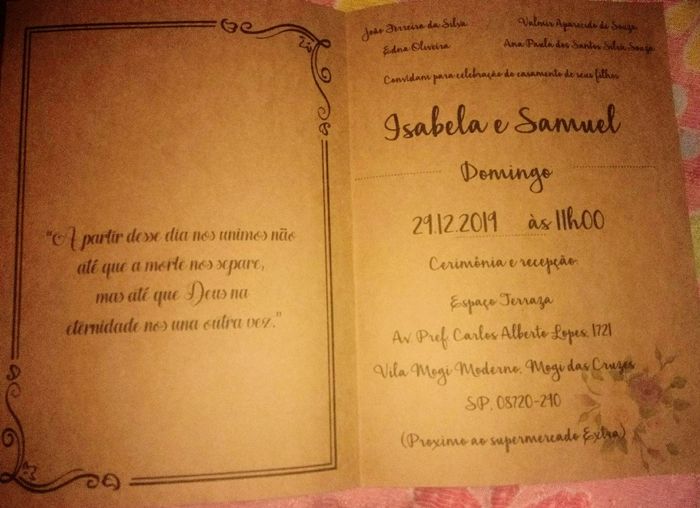 "A partir desse dia nos unimos não
até que a morte nos separe,
mas até que Deus na
eternidade nos una outra vez."
João Ferreira da Silva
Edna Oliveira
Valmir Aparecido de Souza
Ana Paula dos Santos Silva Souza
Convidam para celebração do casamento de seus filhos
Isabela e Samuel
Domingo
29.12.2019 às 11h00
Cerimônia e recepção:
Espaço Terraza
Av. Pref. Carlos Alberto Lopes, 1721
Vila Mogi Moderno, Mogi das Cruzes
SP, 08720-290
(Proximo ao supermercado Extra)